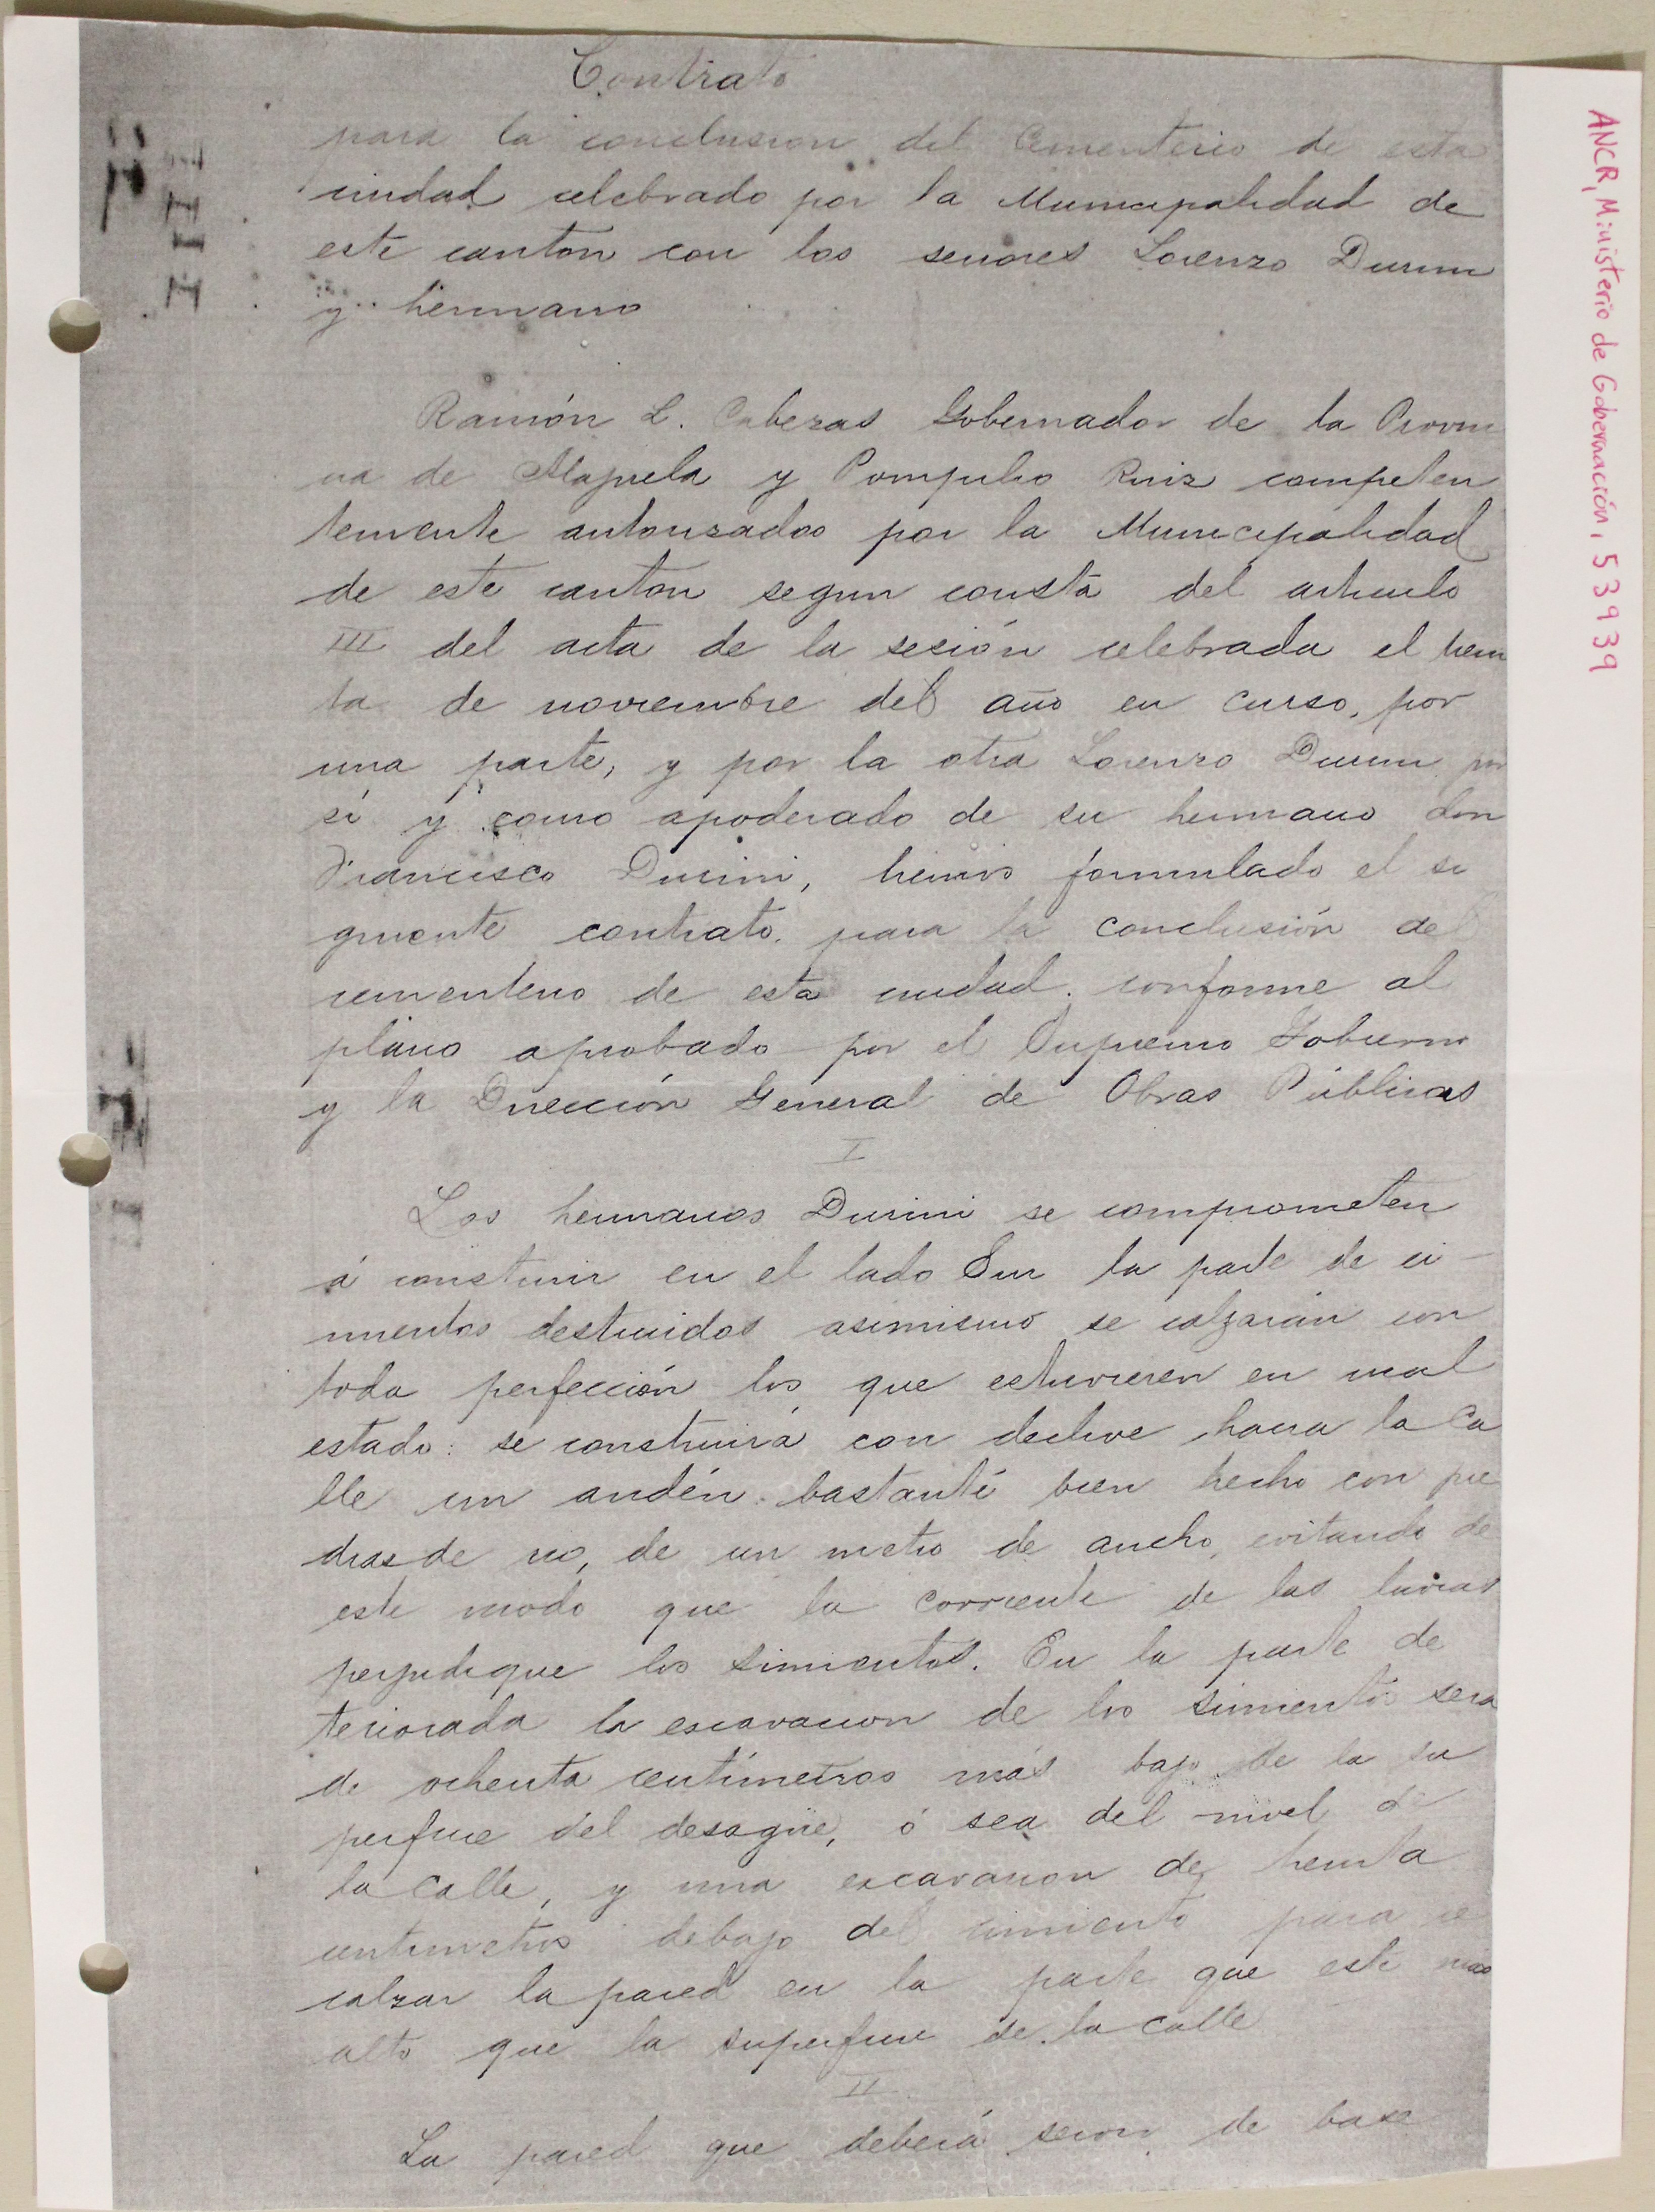 Contrato
para la conclusion del Cementerio de esta
ciudad celebrado por la Municipalidad de
este canton con los señores Lorenzo Durini
y hermano
Ramón L. Cabezas Gobernador de la Provin
cia de Alajuela y Pompilio Ruiz competen
temente autorizados por la Municipalidad
de este canton segun consta del articulo
III del acta de la sesión celebrada el trein
ta de noviembre del año en curso, por
una parte, y por la otra Lorenzo Durini por
sí y como apoderado de su hermano don
Francisco Durini, hemos formulado el si
guiente contrato para la conclusión del
cementerio de esta ciudad conforme al
plano aprobado por el Supremo Gobierno
y la Dirección General de Obras Públicas
I
Los hermanos Durini se comprometen
á construir en el lado Sur la parte de ci-
mientos destruidos asimismo se calzarán con
toda perfección los que estuvieren en mal
estado: se construirá con declive hacia la ca
lle un andén bastante bien hecho con pie
dras de rio, de un metro de ancho, evitando de
este modo que la corriente de las lluvias
perjudique los simientos. En la parte de
teriorada la escavacion de los simientos sera
de ochenta centímetros más bajo de la su
perficie del desagüe, ó sea del nivel de
la calle, y una excavacion de treinta
centimetros debajo del cimiento para re
calzar la pared en la parte que esté más
alto que la superficie de la calle
II
La pared que deberá de base
ANCR, Ministerio de Gobernación, 53939